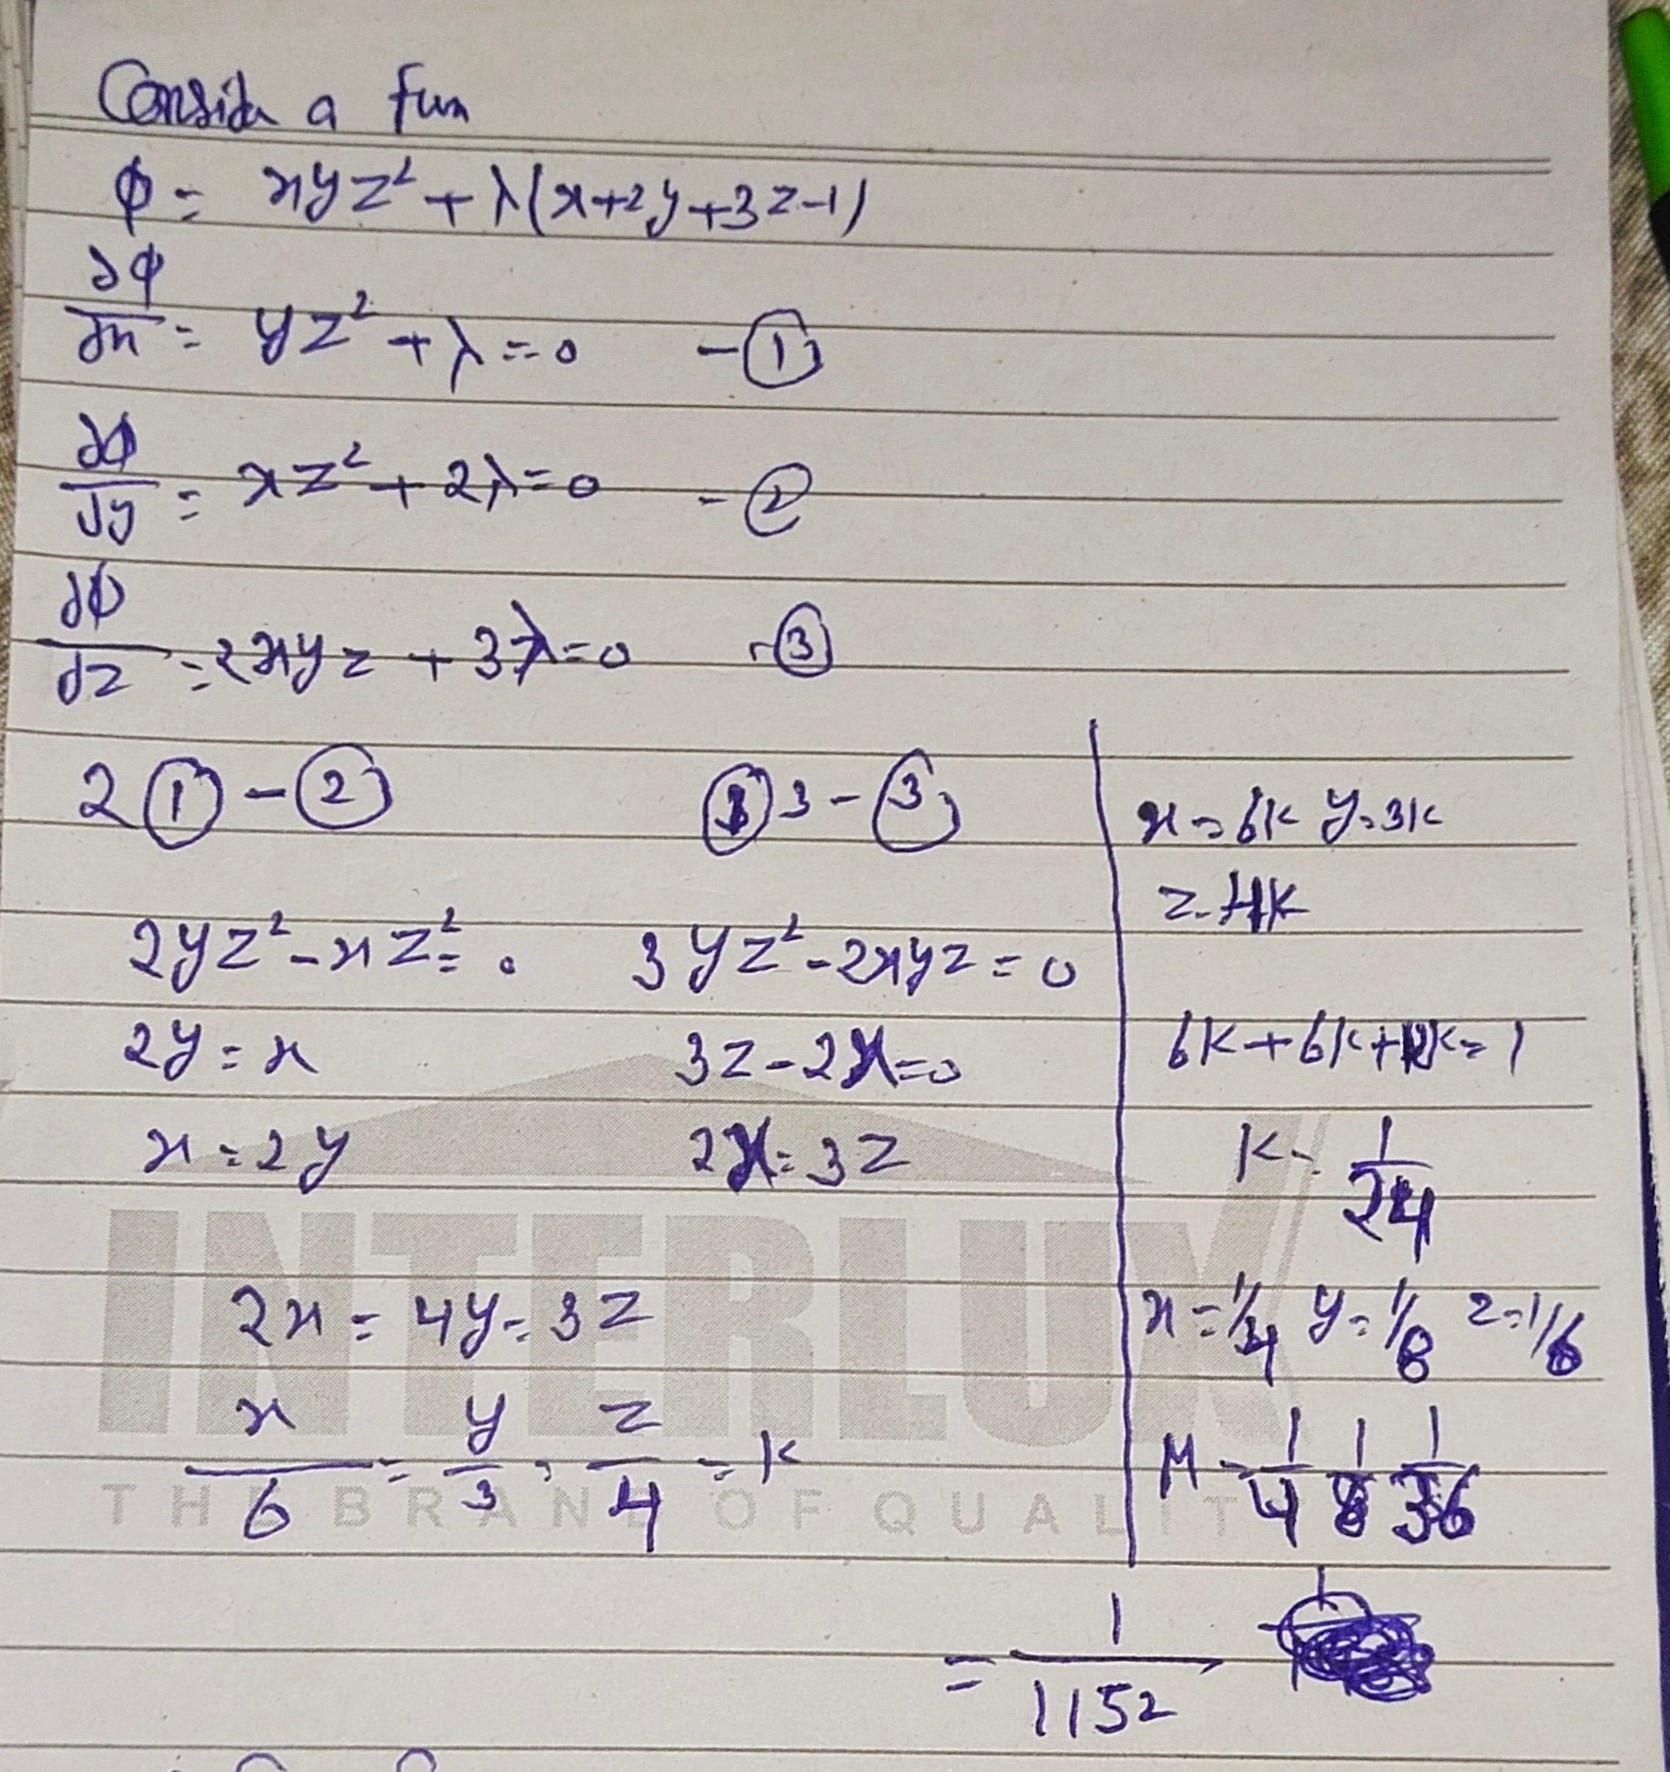 Consider a fun
φ = xyz² + λ(x+2y+3z-1)
∂φ/∂x = yz² + λ = 0 - ①
∂φ/∂y = xz² + 2λ = 0 - ②
∂φ/∂z = 2xyz + 3λ = 0 - ③
2① - ②
①3 - ③
2yz² - xz² = 0
3yz² - 2xyz = 0
2y = x
3z - 2x = 0
x = 2y
2x = 3z
2x = 4y = 3z
x/6 = y/3 = z/4 = k
x = 6k y = 3k
z = 4k
6k + 6k + 12k = 1
k = 1/24
x = 1/4 y = 1/8 z = 1/6
M = 1/4 1/8 1/36
= 1/1152
INTERLUX
THE BRAND OF QUALITY